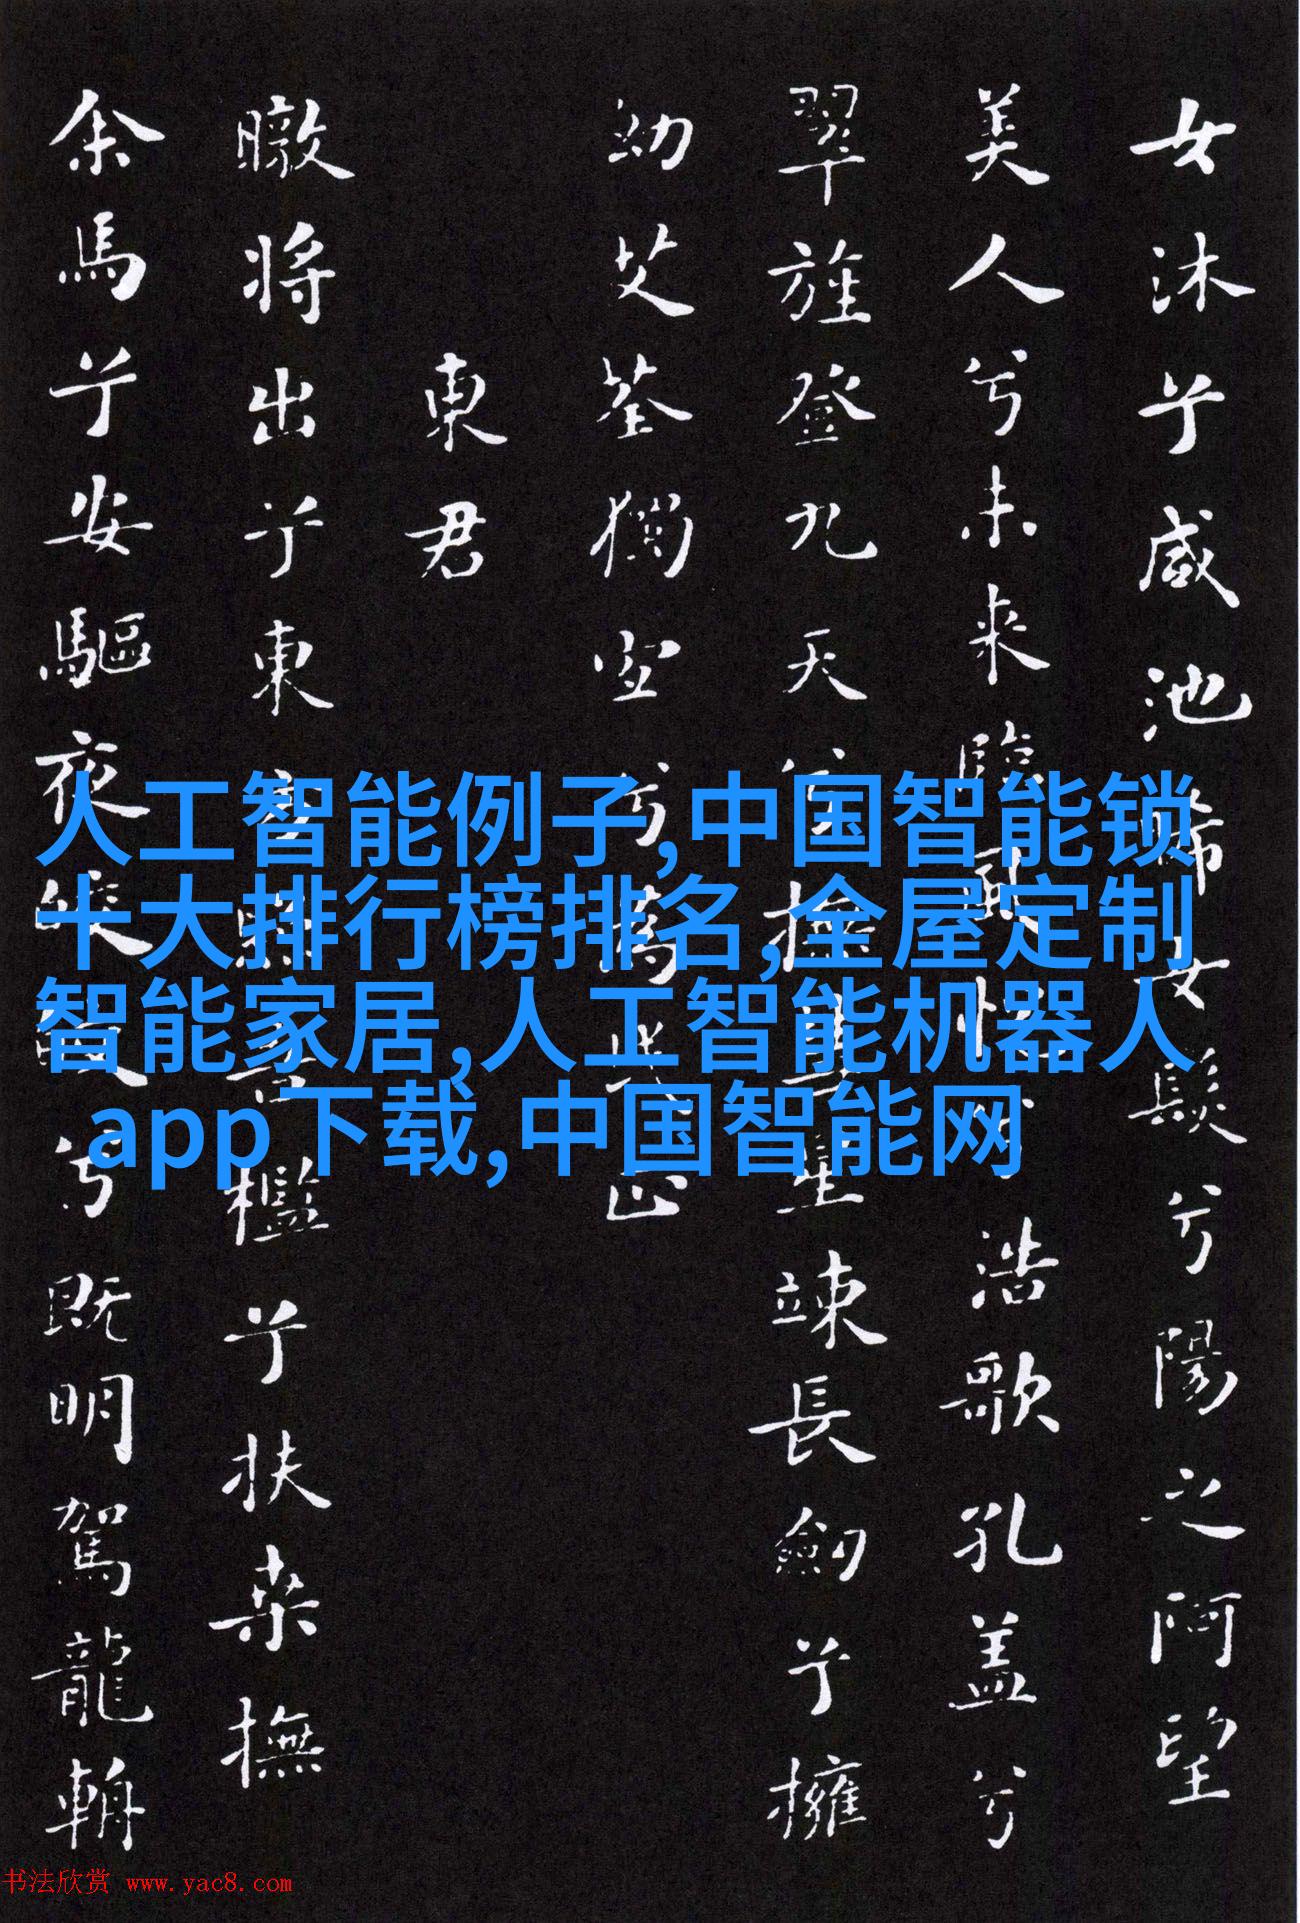 女沐兮咸池晞女髮兮陽之阿望
美人兮未来臨風怳兮浩歌孔盖兮
翠旌登九天兮撫彗星竦長劍兮擁
幼艾荃獨宜兮為民正
東君
暾将出兮東方照吾檻兮扶桒撫
余馬兮安驅夜皎皎兮既明駕龍輈
人工智能例子,中国智能锁
十大排行榜排名,全屋定制
智能家居,人工智能机器人
app下载,中国智能网
书法欣赏 www.yac8.com